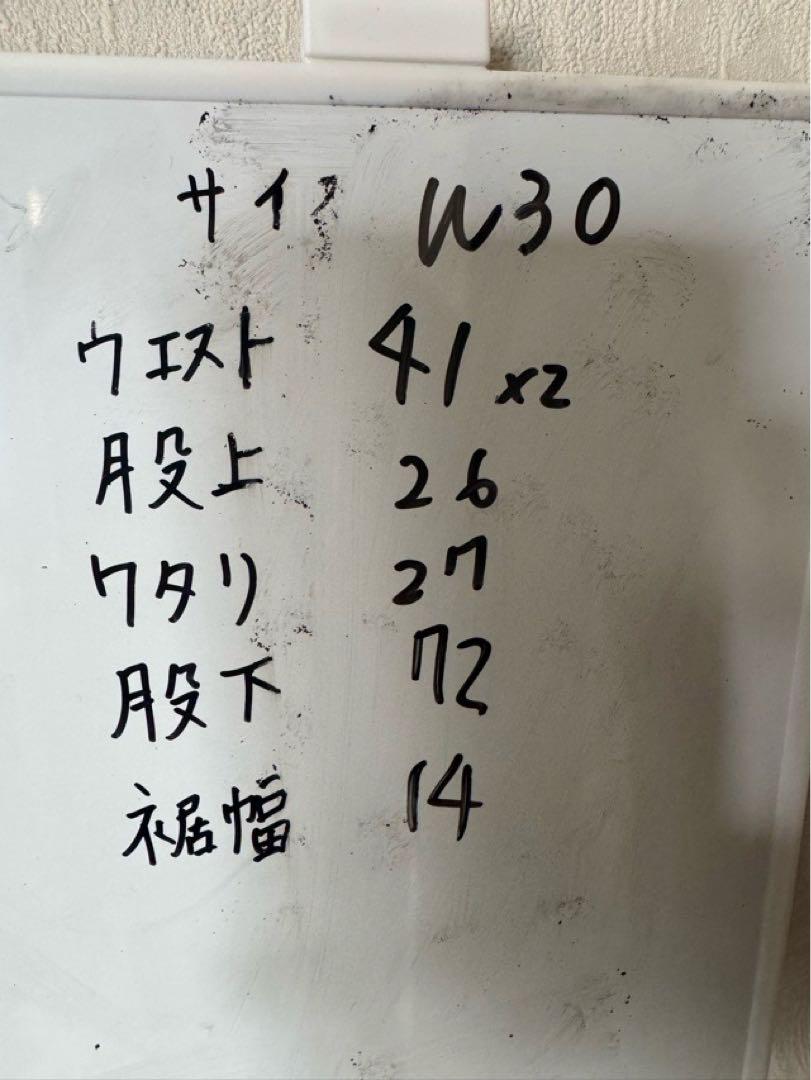 サイズ W30
ウエスト 41x2
股上 26
ワタリ 27
股下 72
裾幅 14